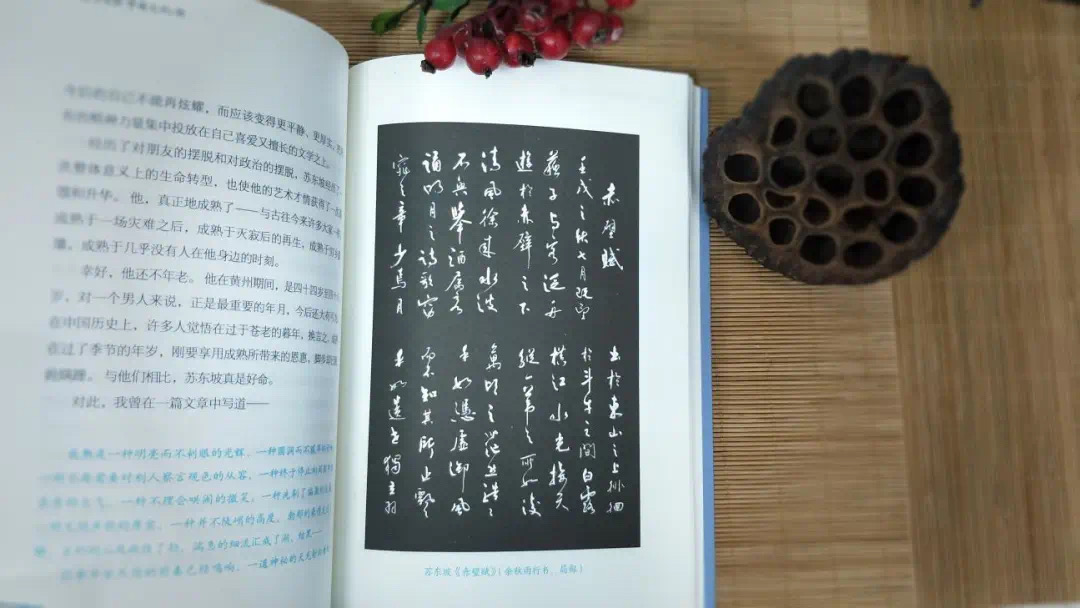 不能再炫耀，而应该变得更平静、更厚实，
精神力量集中投放在自己喜爱又擅长的文学之上。
经历了对朋友的摆脱和对政治的摆脱，苏东坡经
次整体意义上的生命转型，也使他的艺术才情获得了一
馏和升华。他，真正地成熟了——与古往今来许多大家一
成熟于一场灾难之后，成熟于灭寂后的再生，成熟于穷乡
壤，成熟于几乎没有人在他身边的时刻。
幸好，他还不年老。他在黄州期间，是四十四岁至四十
岁，对一个男人来说，正是最重要的年月，今后还大有可
在中国历史上，许多人觉悟在过于苍老的暮年，换言之，
在过了季节的年岁，刚要享用成熟所带来的恩惠，脚步
与他们相比，苏东坡真是好命。
对此，我曾在一篇文章中写道——
成熟是一种明亮而不刺眼的光辉，一种圆润而不腻耳的
需要对别人察言观色的从容，一种终于停止
的大气，一种不理会哄闹的微笑，一种洗刷了偏激的
一种并不陡峭的高度。勃郁的
湍急的细流汇成了湖，结果——
已经鸣响，一道神秘的天光
赤壁賦
壬戌之秋七月既望
蘇子与客泛舟
遊於赤壁之下
清風徐來水波
不興舉酒属客
誦明月之詩歌窈
窕之章少焉月
出於東山之上徘徊
於斗牛之間白露
橫江水光接天
縱一葦之所如凌
萬頃之茫然浩浩
乎如憑虛御風
而不知其所止飄飄
乎如遺世獨立羽
苏东坡《赤壁赋》（余秋雨行书，局部）